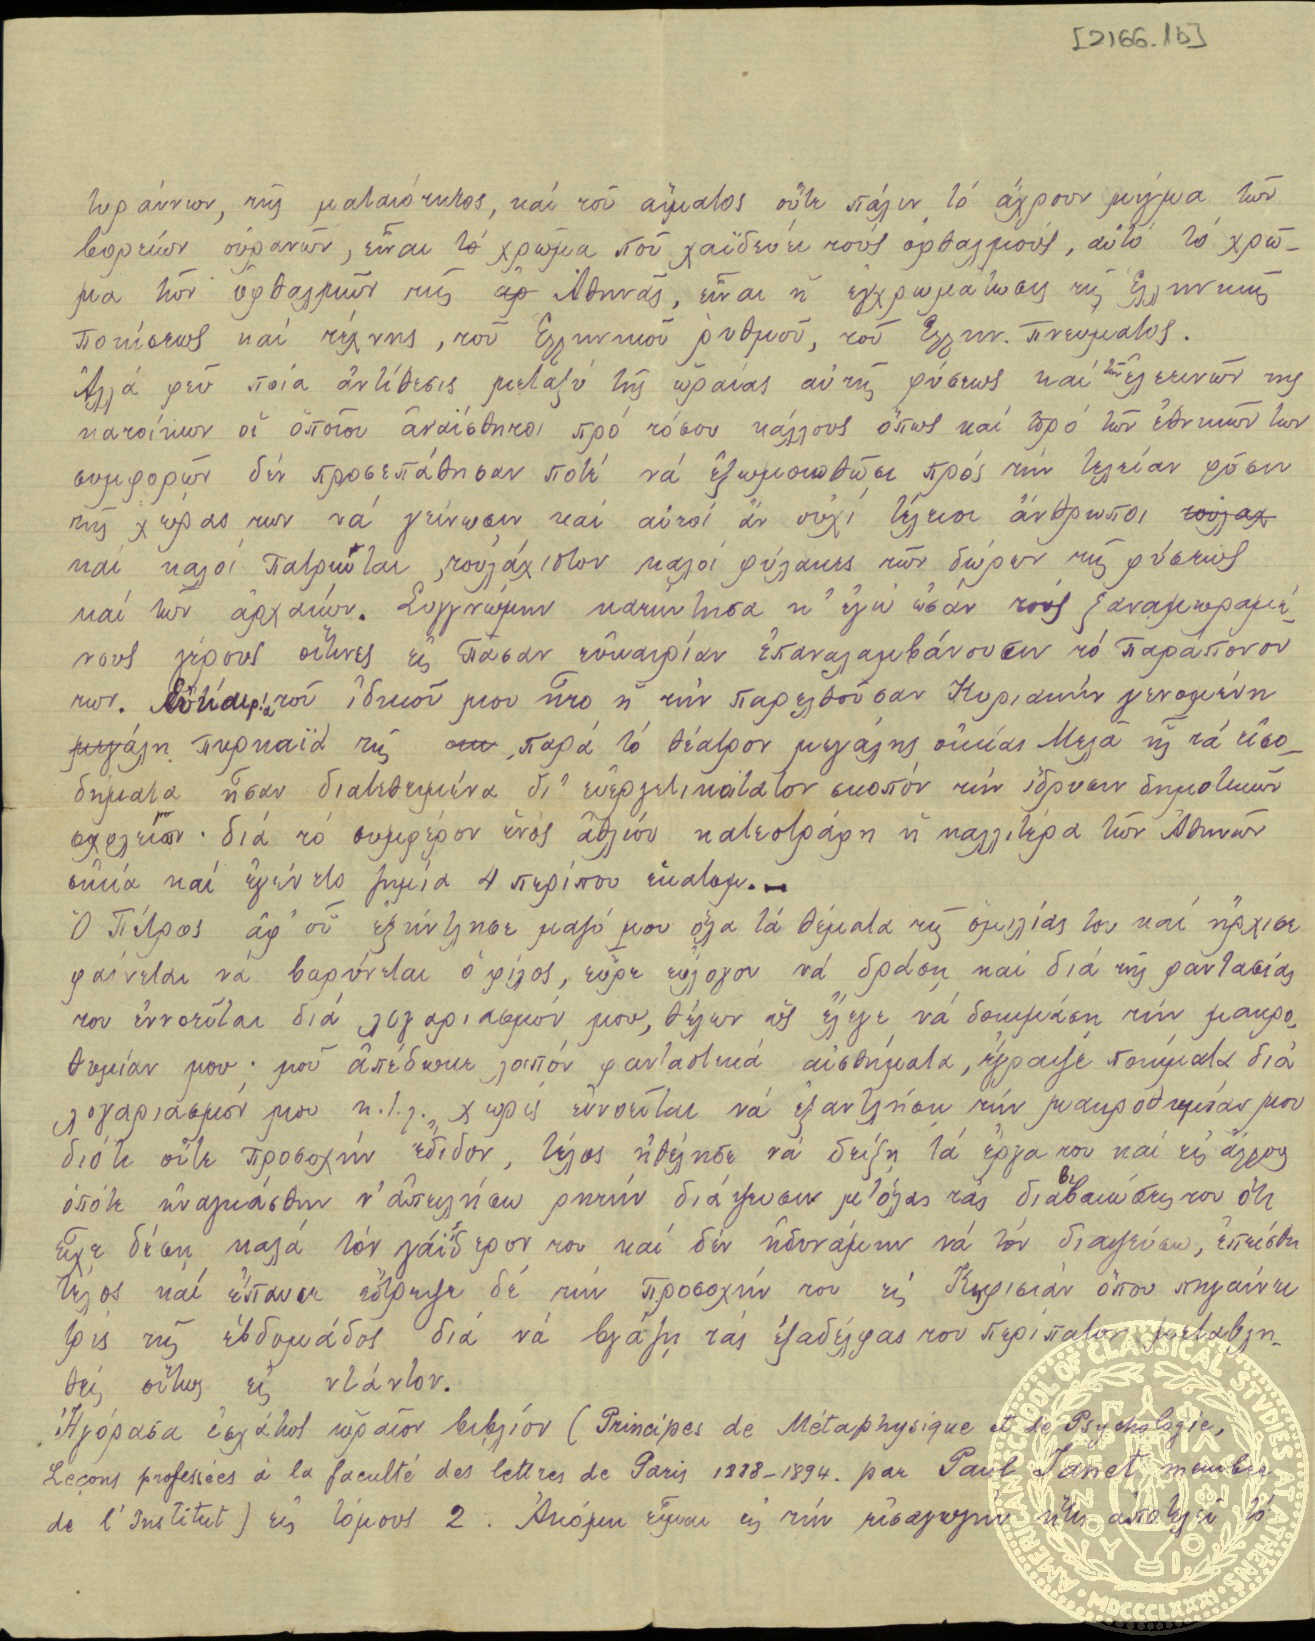 [2166.1b]
τυράννων, τῆς ματαιότητος, καί τοῦ αἵματος οὔτε πάλιν τό ἄχρουν μῖγμα τῶν
βορείων οὐρανῶν, εἶναι τό χρῶμα ποῦ χαϊδεύει τούς ὀφθαλμούς, αὐτό τό χρῶ-
μα τῶν ὀφθαλμῶν τῆς Ἀθηνᾶς, εἶναι ἡ ἐγχρωμάτωσις τῆς Ἑλληνικῆς
ποιήσεως καί τέχνης, τοῦ Ἑλληνικοῦ ῥυθμοῦ, τοῦ Ἑλλην. πνεύματος.
Ἀλλά φεῦ ποία ἀντίθεσις μεταξύ τῆς ὡραίας αὐτῆς φύσεως καί τῶν ἐλεεινῶν της
κατοίκων οἵ ὁποῖοι ἀναίσθητοι πρό τόσου κάλλους ὅπως καί πρό τῶν ἐθνικῶν των
συμφορῶν δέν προσεπάθησαν ποτέ νά ἐξωμοιωθῶσι πρός τήν τελείαν φύσιν
τῆς χώρας των νά γείνωσιν καί αὐτοί ἄν οὐχί τέλειοι ἄνθρωποι τοὐλαχ
καί καλοί πατριῶται, τοὐλάχιστον καλοί φύλακες τῶν δώρων τῆς φύσεως
καί τῶν ἀρχαίων. Συγγνώμην κατήντησα κ' ἐγώ ὡσάν τούς ξαναμωραμέ-
νους γέρους οἵτινες εἰς πᾶσαν εὐκαιρίαν ἐπαναλαμβάνουσιν τό παράπονον
των. Εὐκαιρία τοῦ ἰδικοῦ μου ἦτο ἡ τήν παρελθοῦσαν Κυριακήν γενομένη
μεγάλη πυρκαϊά τῆς παρά τό θέατρον μεγάλης οἰκίας Μελᾶ ἧς τά εἰσο-
δήματα ἦσαν διατεθειμένα δι' εὐεργετικώτατον σκοπόν τήν ἵδρυσιν δημοτικῶν
σχολείων· διά τό συμφέρον ἑνός ἀθλίου κατεστράφη ἡ καλλιτέρα τῶν Ἀθηνῶν
οἰκία καί ἐγένετο ζημία 4 περίπου ἑκατομ.-
Ὁ Πέτρος ἀφ' οὗ ἐξήντλησε μαζύ μου ὅλα τά θέματα τῆς ὁμιλίας του καί ἤρχισε
φαίνεται νά βαρύνεται ὁ φίλος, εὗρε εὔλογον νά δράσῃ καί διά τῆς φαντασίας
του ἐννοεῖται διά λογαριασμόν μου, θέλων ὡς ἔλεγε νά δοκιμάσῃ τήν μακρο-
θυμίαν μου· μοῦ ἀπέδωκε λοιπόν φανταστικά αἰσθήματα, ἔγραψε ποιήματα διά
λογαριασμόν μου κ.τ.λ., χωρίς ἐννοεῖται νά ἐξαντλήσῃ τήν μακροθυμίαν μου
διότι οὔτε προσοχήν ἔδιδον, τέλος ἠθέλησε νά δείξῃ τά ἔργα του καί εἰς ἄλλους
ὁπότε ἠναγκάσθην ν' ἀπειλήσω ρητήν διάψευσιν μ' ὅλας τάς διαβεβαιώσεις του ὅτι
εἶχε δέσῃ καλά τόν γάϊδερον του καί δέν ἠδυνάμην νά τόν διαψεύσω, ἐπείσθη
τέλος καί ἔπαυσε ἔστρεψε δέ τήν προσοχήν του εἰς Κηφισιάν ὅπου πηγαίνει
τρίς τῆς ἑβδομάδος διά νά βγάζῃ τάς ἐξαδέλφας του περίπατον μεταβλη-
θείς οὕτως εἰς ντάντον.
Ἠγόρασα ἐσχάτως ὡραῖον βιβλίον (Principes de Métaphysique et de Psychologie,
Leçons professées à la faculté des lettres de Paris 1888-1894. par Paul Janet membre
de l'Institut) εἰς τόμους 2. Ἀκόμη εἶμαι εἰς τήν εἰσαγωγήν ἥτις ἀποτελεῖ τό
AMERICAN SCHOOL OF CLASSICAL STUDIES AT ATHENS
MDCCCLXXXI